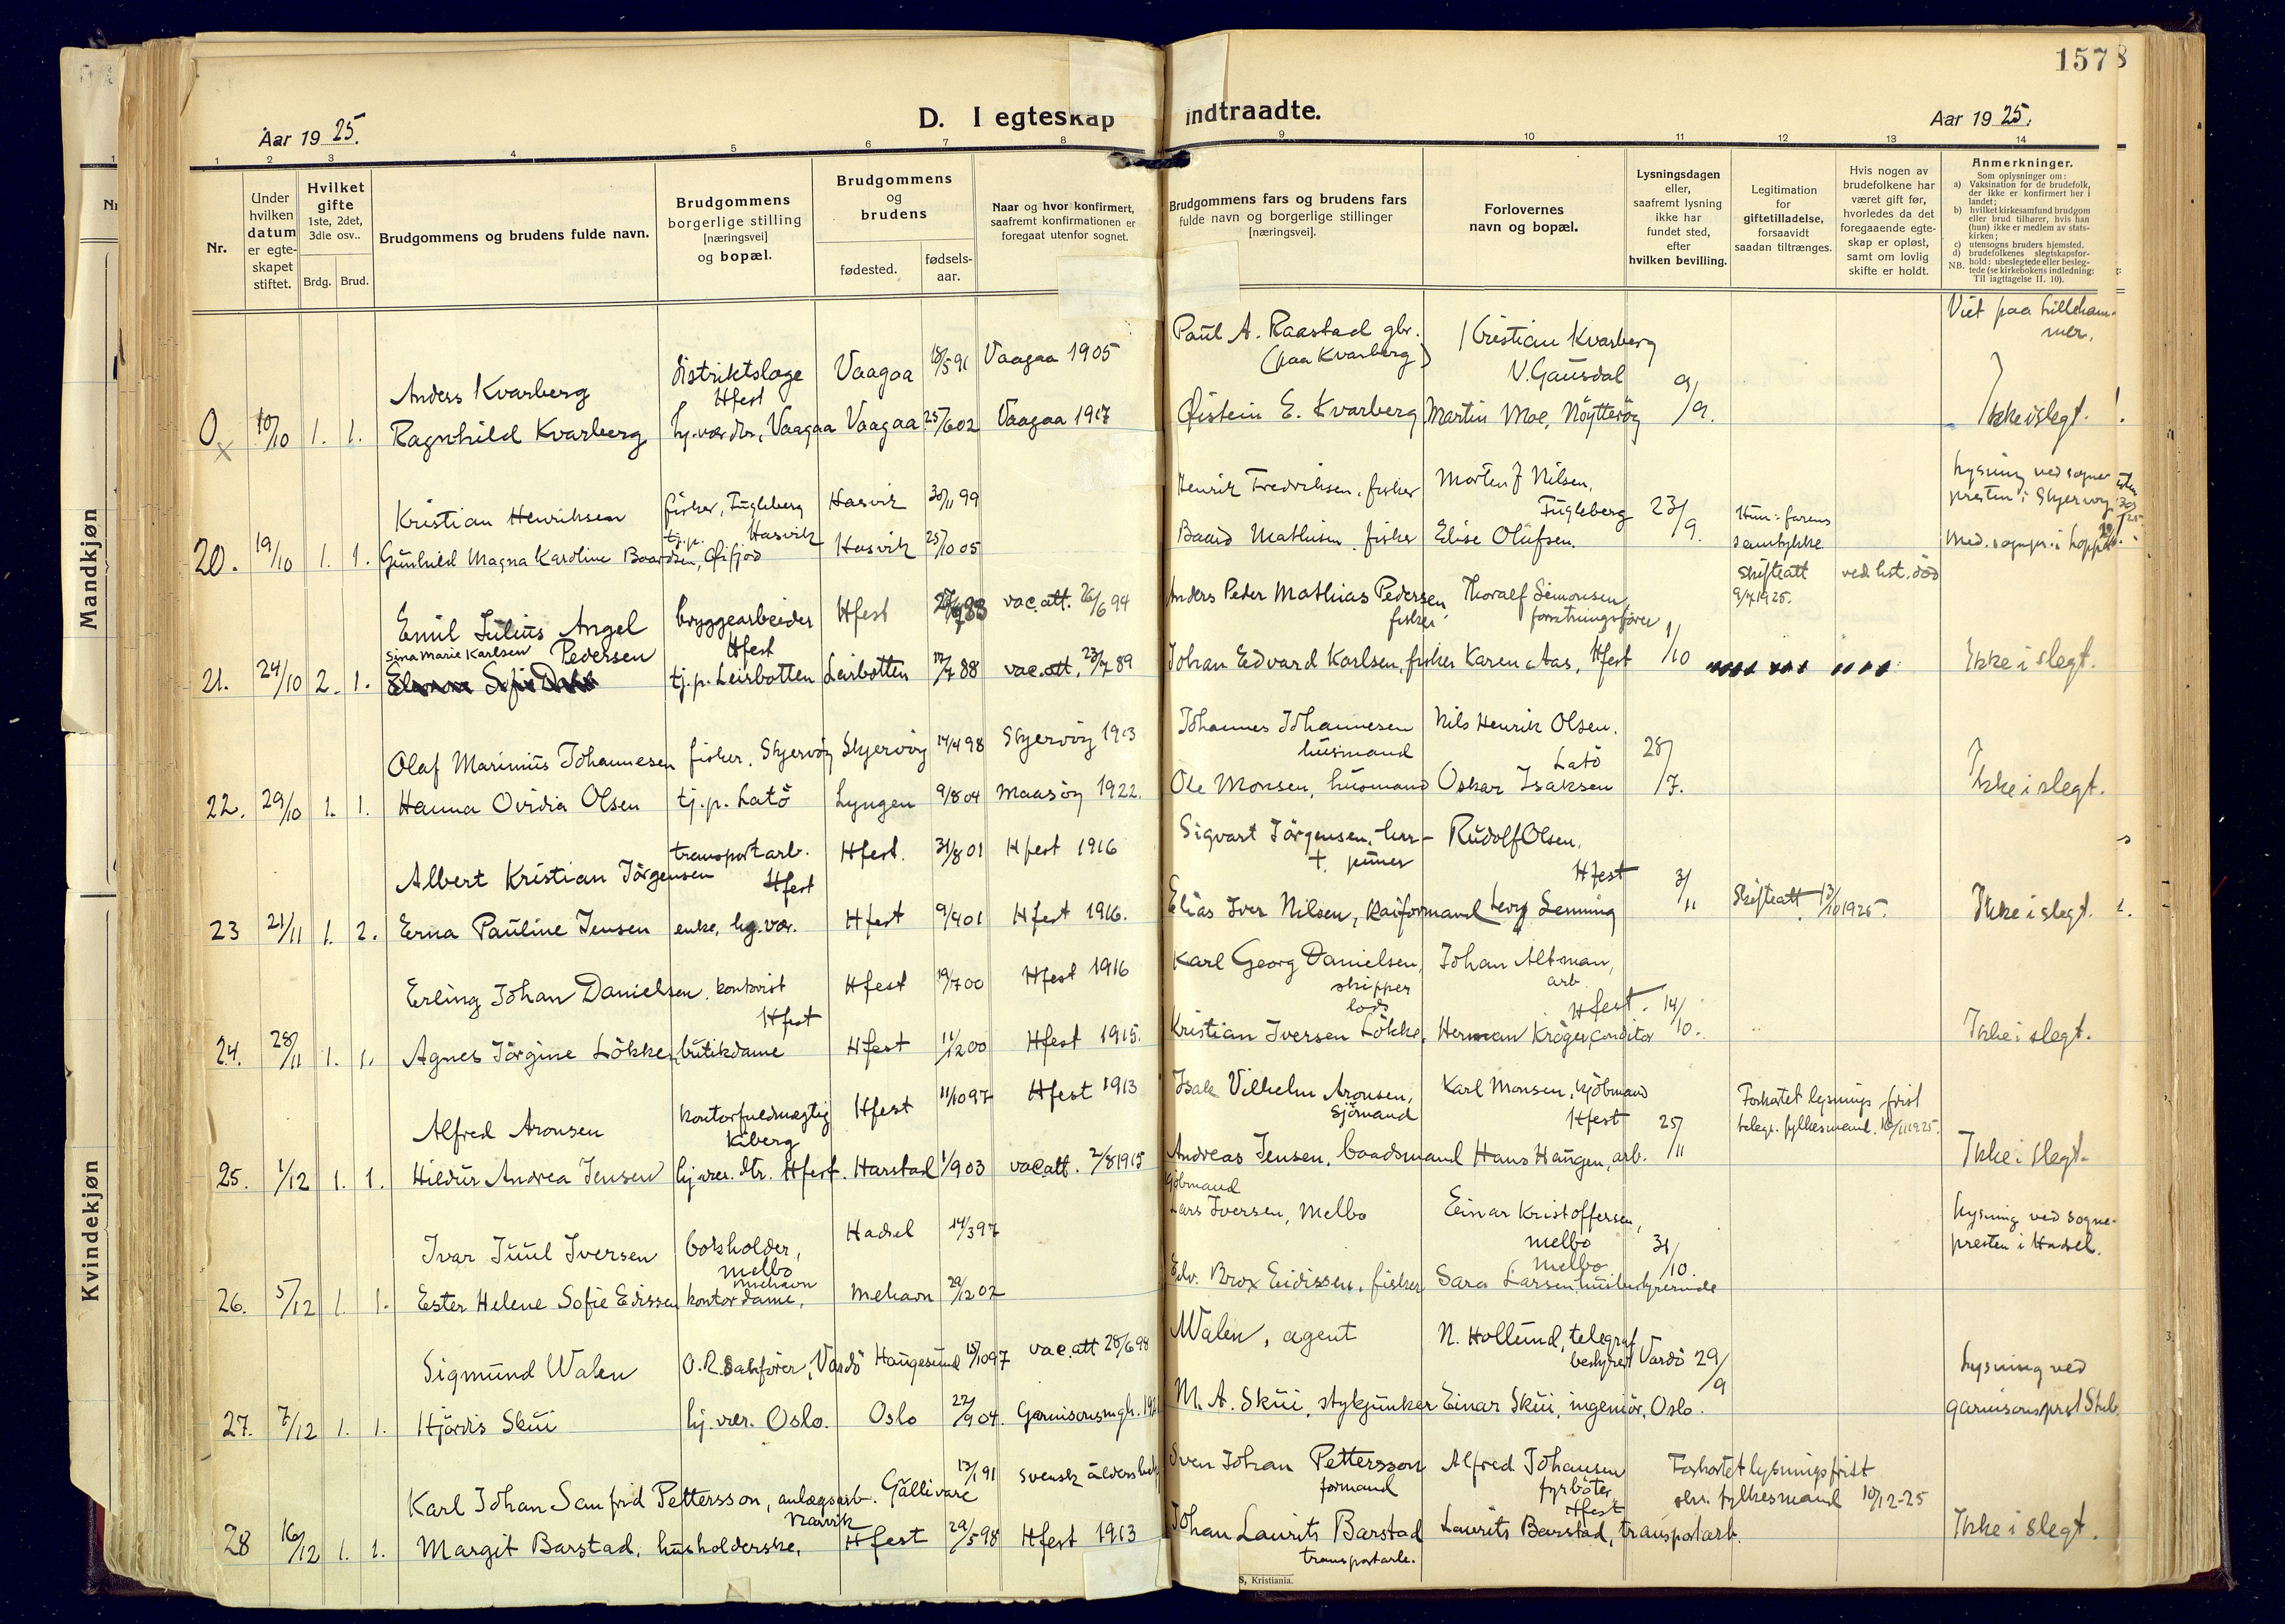 1578
D. I egteskap indtraadte.
Aar 1925.
Aar 1925.
Mandkjøn
Kvindekjøn
1 2 3 4 5 6 7 8 9 10 11 12 13 14
Nr.
Under hvilken datum er egteskapet stiftet.
Hvilket gifte 1ste, 2det, 3die osv..
Brdg. Brud.
Brudgommens og brudens fulde navn.
Brudgommens borgerlige stilling [næringsvei] og bopæl.
Brudgommens og brudens
fødested.
fødsels-aar.
Naar og hvor konfirmert, saafremt konfirmationen er foregaat utenfor sognet.
Brudgommens fars og brudens fars fulde navn og borgerlige stillinger [næringsvei].
Forlovernes navn og bopæl.
Lysningsdagen eller, saafremt lysning ikke har fundet sted, efter hvilken bevilling.
Legitimation for giftetilladelse, forsaavidt saadan tiltrænges.
Hvis nogen av brudefolkene har været gift før, hvorledes da det foregaaende egteskap er opløst, samt om lovlig skifte er holdt.
Anmerkninger.
Som oplysninger om:
a) Vaksination for de brudefolk, der ikke er konfirmert her i landet;
b) hvilket kirkesamfund brudgom eller brud tilhører, hvis han (hun) ikke er medlem av statskirken;
c) utensogns bruders hjemsted.
d) brudefolkenes slegtskapsforhold: ubeslegtede eller beslegtede (se kirkebokens indledning: Til iagttagelse II. 10).
NB.
Anders Kvarberg distriktslæge Hfest Vaagaa 18/5 91 Vaagaa 1905 Paul A. Raastad gbr. (paa Kvarberg) Kristian Kvarberg V. Gausdal Viet paa Lillehammer.
0 10/10 1. 1. Ragnhild Kvarberg hj. vær. dtr., Vaagaa Vaagaa 25/6 02 Vaagaa 1917 Øistein E. Kvarberg Martin Moe, Nøytterøy 9/9. Ikke i slegt.
Kristian Henriksen fisker, Fugleberg Hasvik Hasvik 30/11 99 Henrik Fredriksen, fisker Morten J Nilsen, Fugleberg 23/9. Lysning ved sognepresten i Skjervøy
20. 19/10 1. 1. Gunhild Magna Karoline Baardsen, tj.p. Øifjord Hasvik 25/10 05 Baard Mathisen, fisker Elise Olafsen. Hun: farens samtykke Med. sognpr. i Loppa
Emil Julius Angel Pedersen bryggearbeider Hfest Hfest vac. att. 26/6 94 Anders Peder Mathias Pedersen, fisker Thoralf Simonsen, forretningsfører Skifteatt 9/9 1925. ved hst. død
21. 24/10 2. 1. Sina Marie Karlsen tj.p. Leirbotten Leirbotten 12/7 88 vac. att. 23/7 89 Johan Edvard Karlsen, fisker Karen Aas, Hfest 1/10 Ikke i slegt.
Olaf Marinius Johannesen fisker, Skjervøy Skjervøy 14/4 98 Skjervøy 1913 Johannes Johannesen husmand Nils Henrik Olsen. Latö 28/7.
22. 29/10 1. 1. Hanna Ovidia Olsen tj.p. Latö Lyngen 9/8 04 Maasøy 1922. Ole Monsen, husmand Oskar Isaksen Ikke i slegt.
Albert Kristian Jörgensen transportarb. Hfest Hfest. 31/8 01 Hfest 1916 Sigvart Jörgensen, Rudolf Olsen, Hfest 3/11
23 21/11 1. 2. Erna Pauline Jensen enke, hj. vær. Hfest 9/4 01 Hfest 1916. Elias Iver Nilsen, kaiformand Levy Lenning Skifteatt. 13/10 1925. Ikke i slegt.
Erling Johan Danielsen, kontorist Hfest Hfest 19/7 00 Hfest 1916 Karl Georg Danielsen, skipper Johan Altman, arb. Hfest. 14/10.
24. 28/11 1. 1. Agnes Jörgine Lökke, butikdame Hfest 11/12 00 Hfest 1915. Kristian Iversen Lökke, lods Herman Kröger, conditor Ikke i slegt.
Alfred Aronsen kontorfuldmægtig Kiberg Hfest 11/10 97 Hfest 1913 Isak Vilhelm Aronsen, Sjömand Karl Monsen, kjöbmand Hfest 25/11 Forkortet lysnings frist telegr. fylkesmand.
25. 1/12 1. 1. Hildur Andrea Jensen hj. vær. dtr. Hfest. Harstad 1/9 03 vac. att. 2/8 1915 Andreas Jensen, baadsmand Hans Haugen, arb. Ikke i slegt.
Ivar Juul Iversen bokholder, Melbo Hadsel 14/3 97 kjöbmand Lars Iversen, Melbo Einar Kristoffersen, Melbo 31/10. Lysning ved sognepresten i Hadsel.
26. 5/12 1. 1. Ester Helene Sofie Edissen kontordame, Mehavn Mehavn 29/12 02 Edv. Brox Eidissen, fisker Sara Larsen, husbestyrerinde Melbo
Sigmund Walen O.R.sakfører, Vardö Haugesund 15/10 97 vac. att 28/6 98 Walen, agent N. Hollund, telegrafbestyrer Vardö 29/9
27. 7/12 1. 1. Hjördis Skui hj. vær. Oslo. Oslo 22/9 04. Garnisonsmgh. M. A. Skui, stykjunker Einar Skui, ingeniör, Oslo. Lysning ved garnisonsprst
Karl Johan Sanfrid Pettersson, anlægsarb. Narvik Gällivare 13/1 91 svensk Sven Johan Pettersson formand Alfred Johansen fyrböter Hfest Forkortet lysningsfrist skr. fylkesmand 10/12-25
28 16/12 1. 1. Margit Barstad, husholderske, Hfest 29/5 98 Hfest 1913 Johan Laurits Barstad transportarb. Laurits Barstad, transportarb. Ikke i slegt.
S, Kristiania.